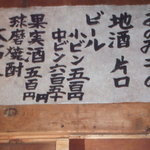 おのみもの
地酒 片口
ビール
小ビン 五百円
中ビン 六百五十
果実酒 五百円
球磨焼酎